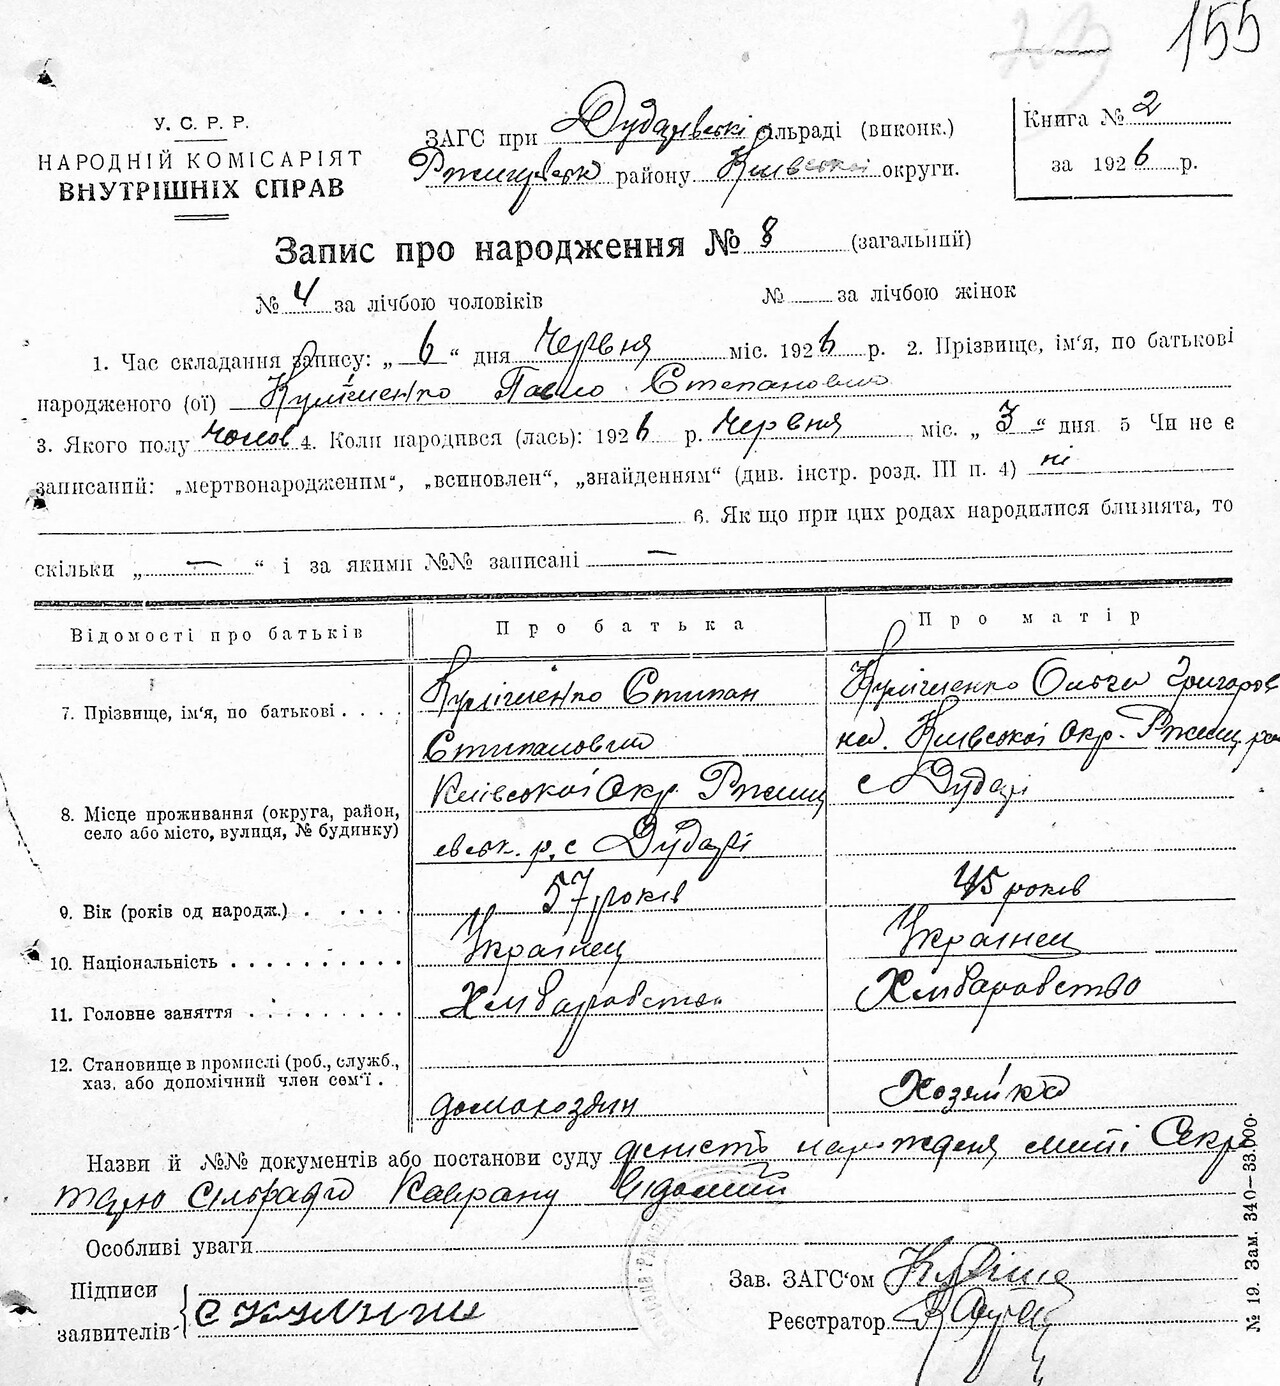 155
У. С. Р. Р.
НАРОДНІЙ КОМІСАРІЯТ
ВНУТРІШНІХ СПРАВ
ЗАГС при Дударівські сільраді (виконк.)
Ржищівськ району Київської округи.
Книга № 2
за 1926 р.
Запис про народження № 8 (загальний)
№ 4 за лічбою чоловіків № за лічбою жінок
1. Час складання запису: „ 6 “ дня Червня міс. 1926 р. 2. Прізвище, ім'я, по батькові
народженого (ої) Куліченко Павло Степанович
3. Якого полу чолов 4. Коли народився (лась): 1926 р. Червня міс. „ 3 “ дня 5 Чи не є
записаний: „мертвонародженим“, „всиновлен“, „знайденням“ (див. інстр. розд. III п. 4) ні
6. Як що при цих родах народилися близнята, то
скільки „ — “ і за якими №№ записані —
Відомості про батьків Про батька Про матір
7. Прізвище, ім'я, по батькові . . . . Куліченко Степан Куліченко Ольга Григоров
Степанович на. Київської Окр. Ржищ. ра
8. Місце проживання (округа, район, село або місто, вулиця, № будинку) Київської Окр Ржищ с Дударі
евськ. р. с Дударі
9. Вік (років од народж.) . . . . . 57 років 45 років
10. Національність . . . . . . . . . . Українец Українец
11. Головне заняття . . . . . . . . . Хліборобство Хліборобство
12. Становище в промислі (роб., служб., хаз. або допомічний член сем'ї .
домохозяин Хозяйка
Назви й №№ документів або постанови суду дєність народженя мині Секре
тарю сільради відомий
Особливі уваги
Підписи
заявителів
Зав. ЗАГС'ом
Реєстратор
№ 19. Зам. 340—33.000.